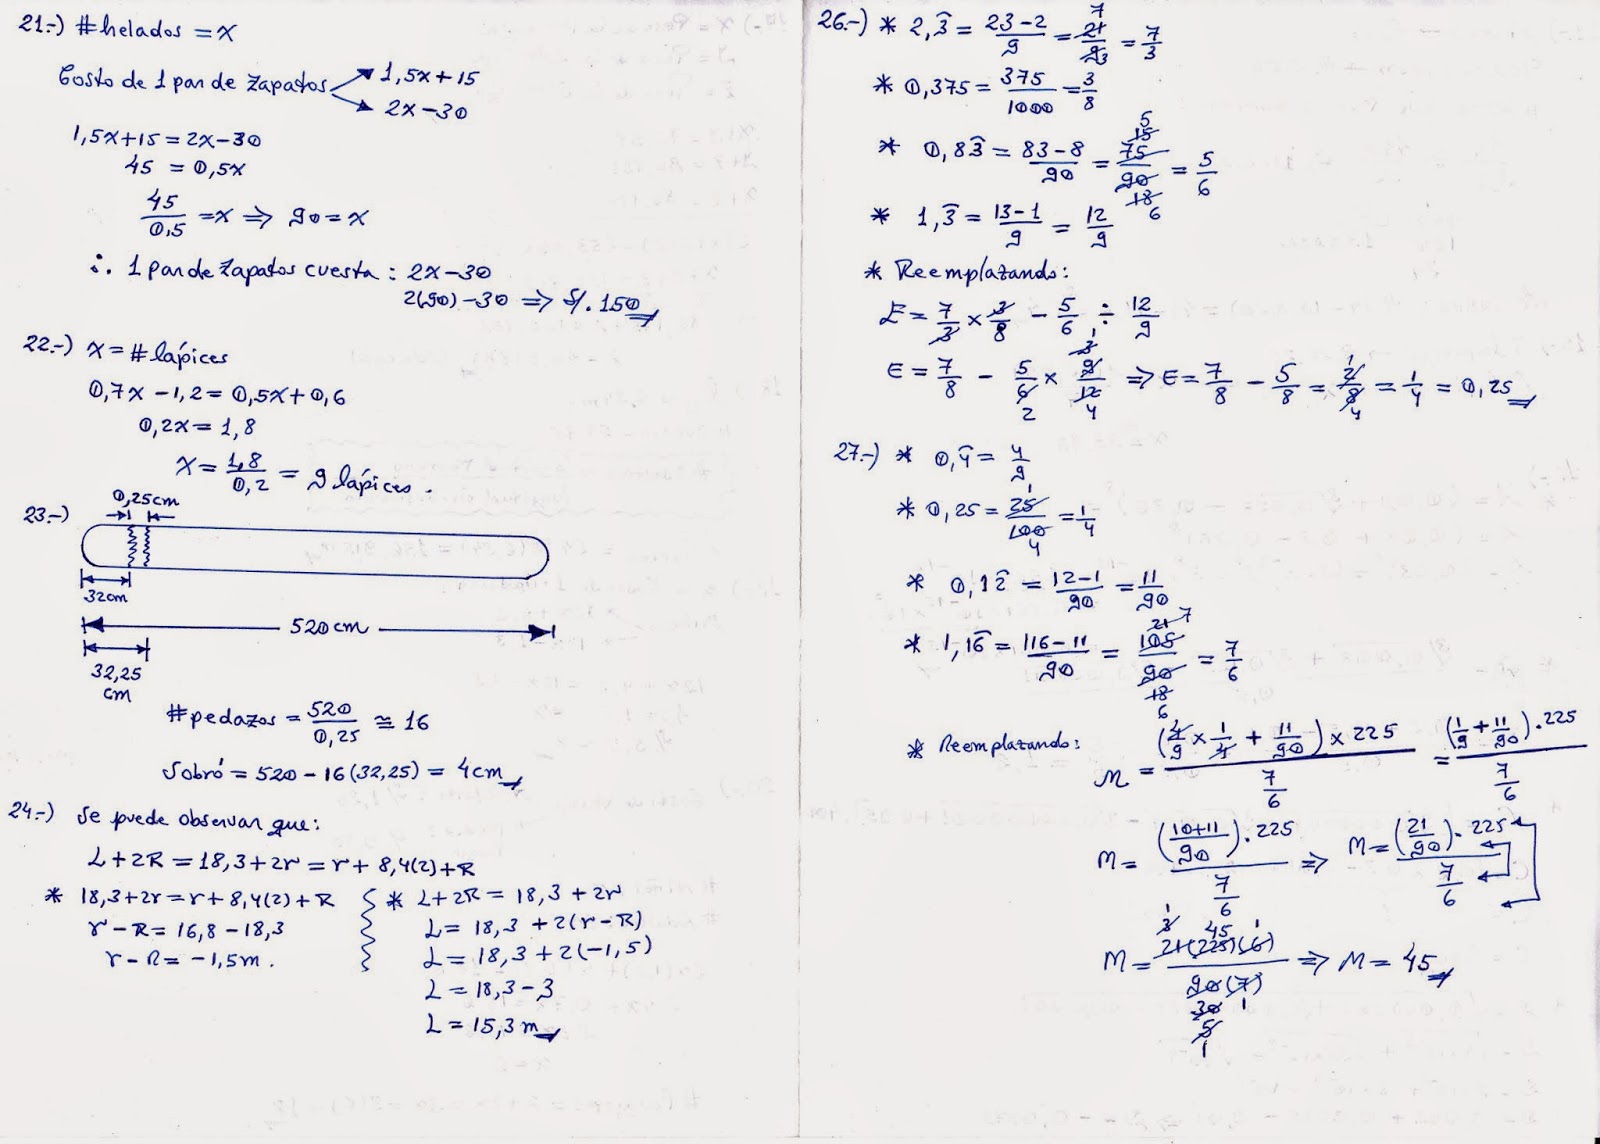 21.-) #helados = x
Costo de 1 par de zapatos 1,5x+15
2x-30
1,5x+15 = 2x-30
45 = 0,5x
45/0,5 = x ⇒ 90 = x
∴ 1 par de zapatos cuesta : 2x-30
2(90)-30 ⇒ S/. 150
22.-) x = # lápices
0,7x - 1,2 = 0,5x + 0,6
0,2x = 1,8
x = 1,8/0,2 = 9 lápices.
23.-) 0,25cm
32cm
520cm
32,25 cm
#pedazos = 520/0,25 ≅ 16
Sobró = 520 - 16(32,25) = 4cm
24.-) Se puede observar que:
L + 2R = 18,3 + 2r = r + 8,4(2) + R
* 18,3+2r = r + 8,4(2) + R
r - R = 16,8 - 18,3
r - R = -1,5m.
* L+2R = 18,3 + 2r
L = 18,3 + 2(r-R)
L = 18,3 + 2(-1,5)
L = 18,3 - 3
L = 15,3 m
26.-) * 2,3̂ = 23-2/9 = 21/9 7 3 = 7/3
* 0,375 = 375/1000 = 3/8
* 0,83̂ = 83-8/90 = 75/90 15 5 18 6 = 5/6
* 1,3̂ = 13-1/9 = 12/9
* Reemplazando:
E = 7/3 × 3/8 - 5/6 ÷ 12/9
E = 7/8 - 5/6 2 × 9/12 3 1 4 ⇒ E = 7/8 - 5/8 = 2/8 1 4 = 1/4 = 0,25
27.-) * 0,4̂ = 4/9
* 0,25 = 25/100 1 4 = 1/4
* 0,12̂ = 12-1/90 = 11/90
* 1,16̂ = 116-11/90 = 105/90 21 7 18 6 = 7/6
* Reemplazando: M = (4/9 × 1/4 + 11/90) × 225 / 7/6 = (1/9 + 11/90).225 / 7/6
M = (10+11/90).225 / 7/6 ⇒ M = (21/90).225 / 7/6
M = 21(225)(6)/90(7) 3 1 45 1 30 5 1 1 ⇒ M = 45